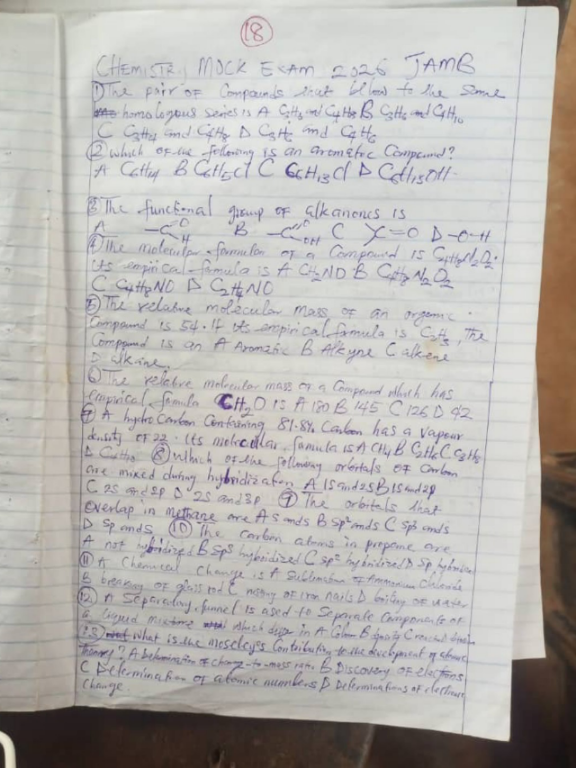 18
CHEMISTRY MOCK EXAM 2026 JAMB
① The pair of Compounds that belong to the same
homologous series is A C₂H₆ and C₄H₈ B C₃H₈ and C₄H₁₀
C and C₄H₈ D C₃H₆ and C₄H₆
② which of the following is an aromatic Compound?
A C₆H₁₄ B C₆H₅Cl C C₆H₁₃Cl D C₆H₁₃OH.
③ The functional group of alkanones is
A -C O H B -C O OH C C=O D -O-H
④ The molecular formular of a Compound is C₄H₈N₂O₂.
its empirical formula is A CH₂NO B C₄H₈N₂O₂
C C₄H₈NO D C₂H₄NO
⑤ The relative molecular mass of an organic
Compound is 54. If its empirical formula is C₂H₃, The
Compound is an A Aromatic B Alkyne C alkene
D alkane
⑥ The relative molecular mass of a Compound which has
empirical formula CH₂O is A 180 B 145 C 126 D 42
⑦ A hydro Carbon Containing 81.8% Carbon has a vapour
density of 22. Its molecular formula is A CH₄ B C₂H₆ C C₃H₈
D C₄H₁₀ ⑧ Which of the following orbitals of Carbon
are mixed during hybridization A 1S and 2S B 1S and 2p
C 2S and 2p D 2S and 3p ⑨ The orbitals that
Overlap in methane are A S and S B Sp² and S C Sp³ and S
D Sp and S ⑩ The carbon atoms in propene are
A not hybridized B Sp³ hybridized C Sp² hybridized D Sp hybridized
⑪ A Chemical Change is A Sublimation of Ammonium chloride
B breaking of glass rod C rusting of iron nails D boiling of water
⑫ A Separating funnel is used to Separate Components of
liquid mixture which differ in A Colour B density C
⑬ What is the moseley's Contribution to the development of atomic
theory? A Determination of charge-to-mass ratio B Discovery of electrons
C Determination of atomic numbers D Determinations of electronic
Change.